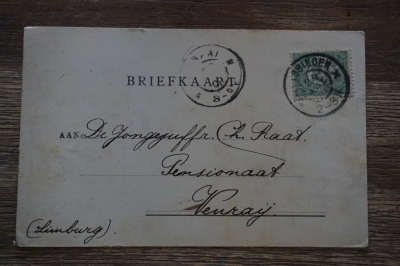 BRIEFKAART
AAN De Jongejuffr. Ch. Raat.
Pensionaat
Venraij
(Limburg).